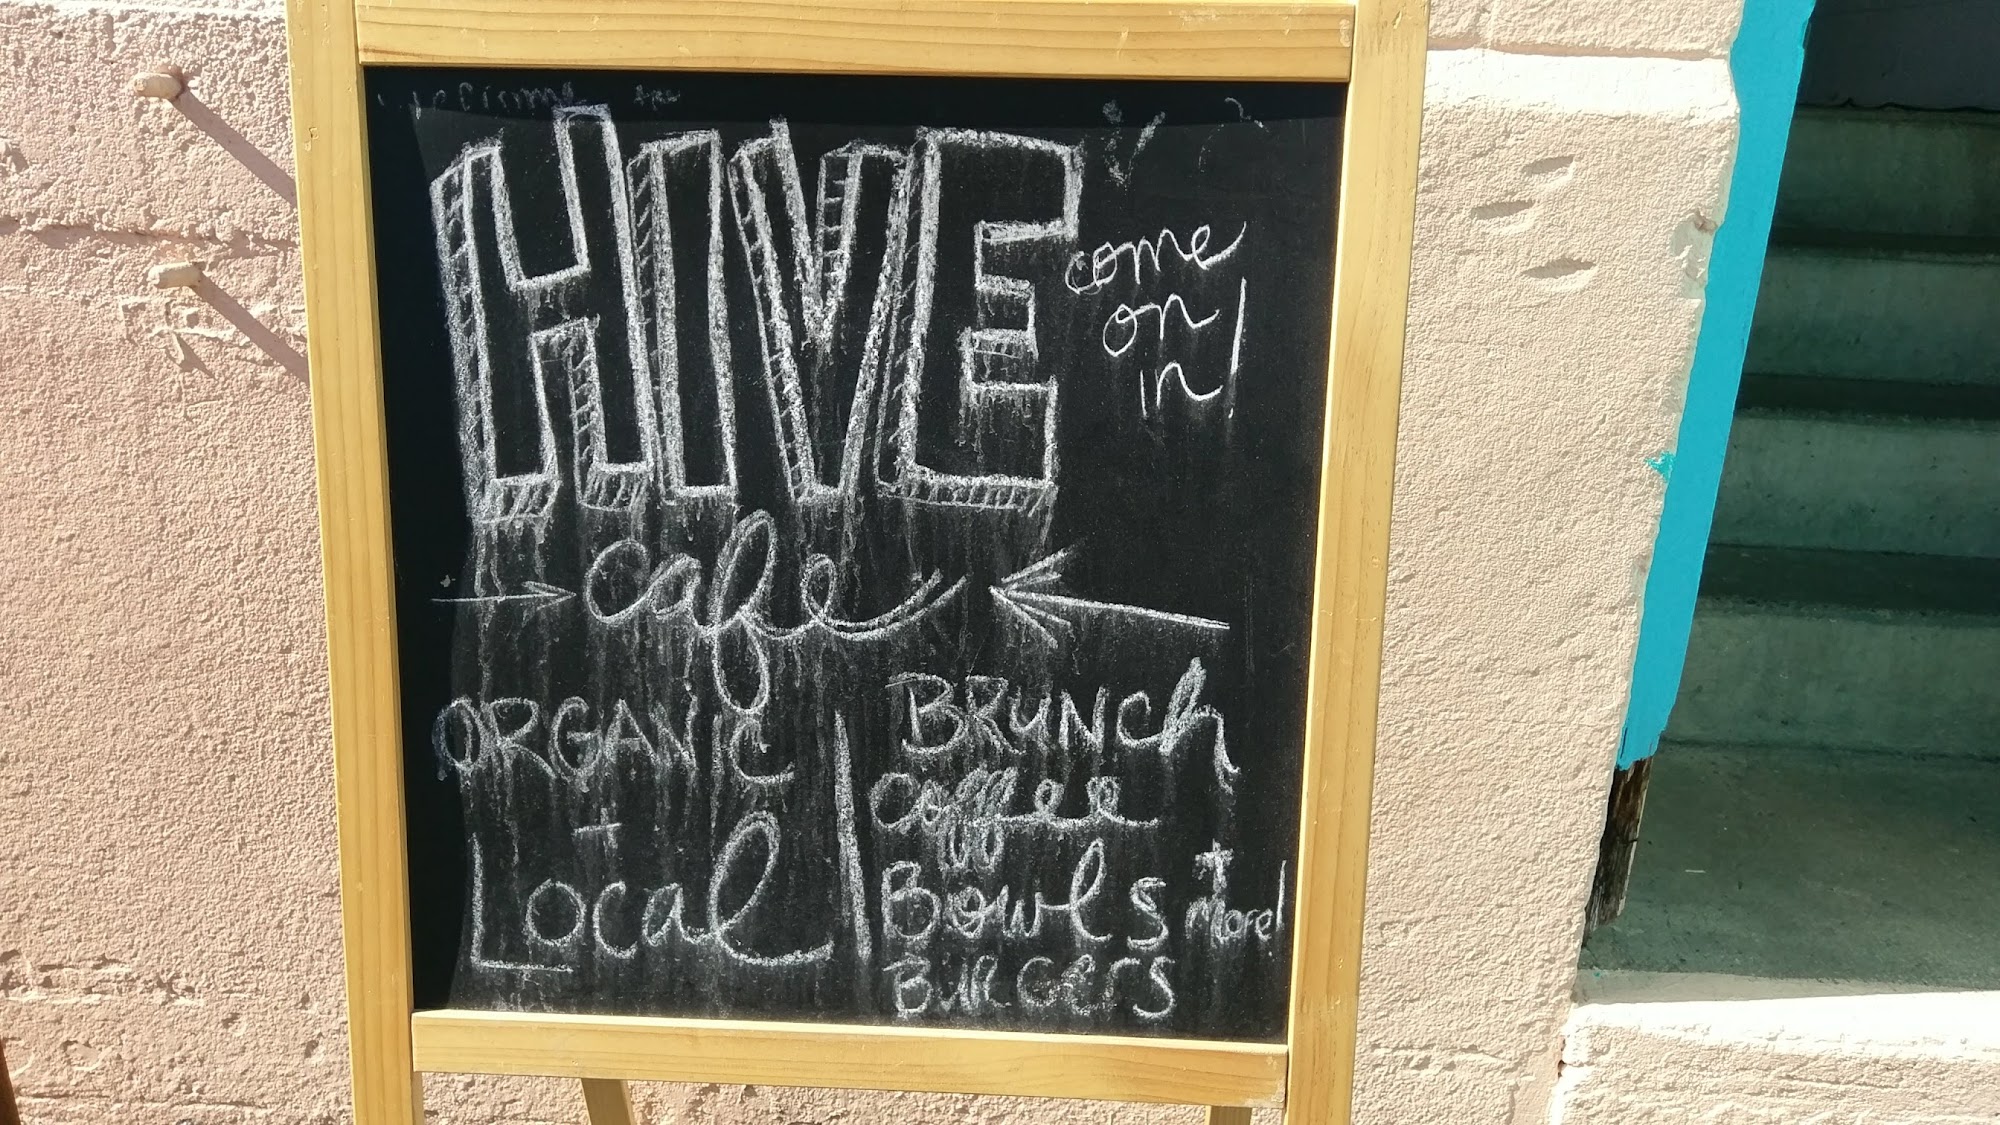 HIVE
come
on
in!
cafe
ORGANIC
+
Local
BRUNCh
coffee
Bowls
BURGERS
+
more!